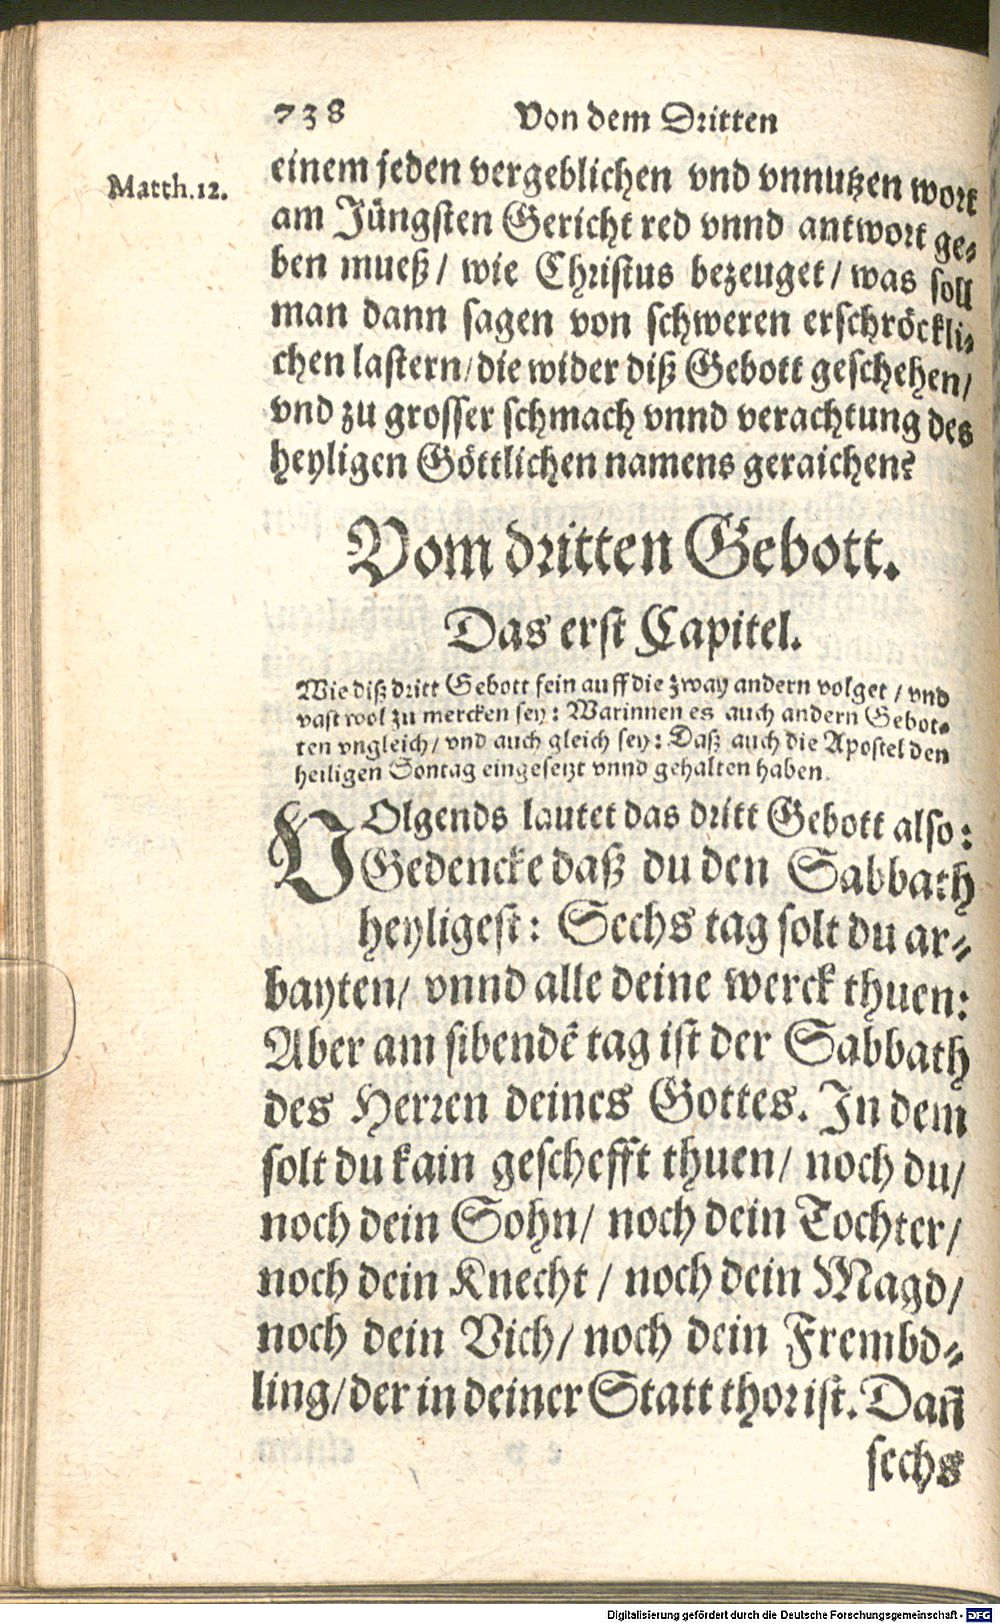 738 Von dem Dritten
Matth.12.
einem jeden vergeblichen vnd vnnutzen wort
am Jüngsten Gericht red vnnd antwort ge-
ben mueß/ wie Christus bezeuget/ was soll
man dann sagen von schweren erschröckli-
chen lastern/ die wider diß Gebott geschehen/
vnd zu grosser schmach vnnd verachtung des
heyligen Göttlichen namens geraichen?
Vom dritten Gebott.
Das erst Capitel.
Wie diß dritt Gebott fein auff die zway andern volget / vnd
vast wol zu mercken sey: Warinnen es auch andern Gebot-
ten vngleich/ vnd auch gleich sey: Daß auch die Apostel den
heiligen Sontag eingesetzt vnnd gehalten haben.
VOlgends lautet das dritt Gebott also:
Gedencke daß du den Sabbath
heyligest: Sechs tag solt du ar-
bayten/ vnnd alle deine werck thuen:
Aber am sibendē tag ist der Sabbath
des Herren deines Gottes. In dem
solt du kain geschefft thuen/ noch du/
noch dein Sohn/ noch dein Tochter/
noch dein Knecht / noch dein Magd/
noch dein Vich/ noch dein Frembd-
ling/ der in deiner Statt thor ist. Dañ
sechs
Digitalisierung gefördert durch die Deutsche Forschungsgemeinschaft - DFG